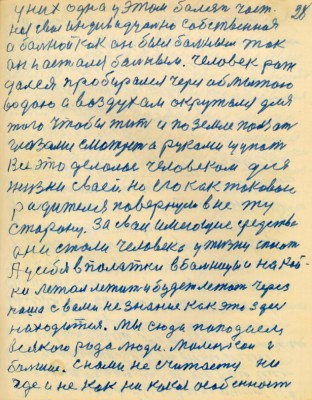 у них одна у этом балеят част
28
ная своя индивидуално собственная
а балной как он был балным так
он и астался балным. Человек раж
дался пробирался через абмытою
водою а воздухам окружали для
того чтобы жит и по земле ползат
глазами смотрит а руками щупат
Все это делалос человеком для
жизни своей, но его как такового
радителя повернули в не ту
сторону. За сваи имеющие средства
ани стали человека у жизни
А у себя в палатки в балницы и на кой-
ки летал летит и будет летат через
наше с вами не знание как это здес
находится. Мы сюда попадаем
всякого рода люди. Маленкои и
болшие. С нами не считаются ни
где и не как ни какой особенност